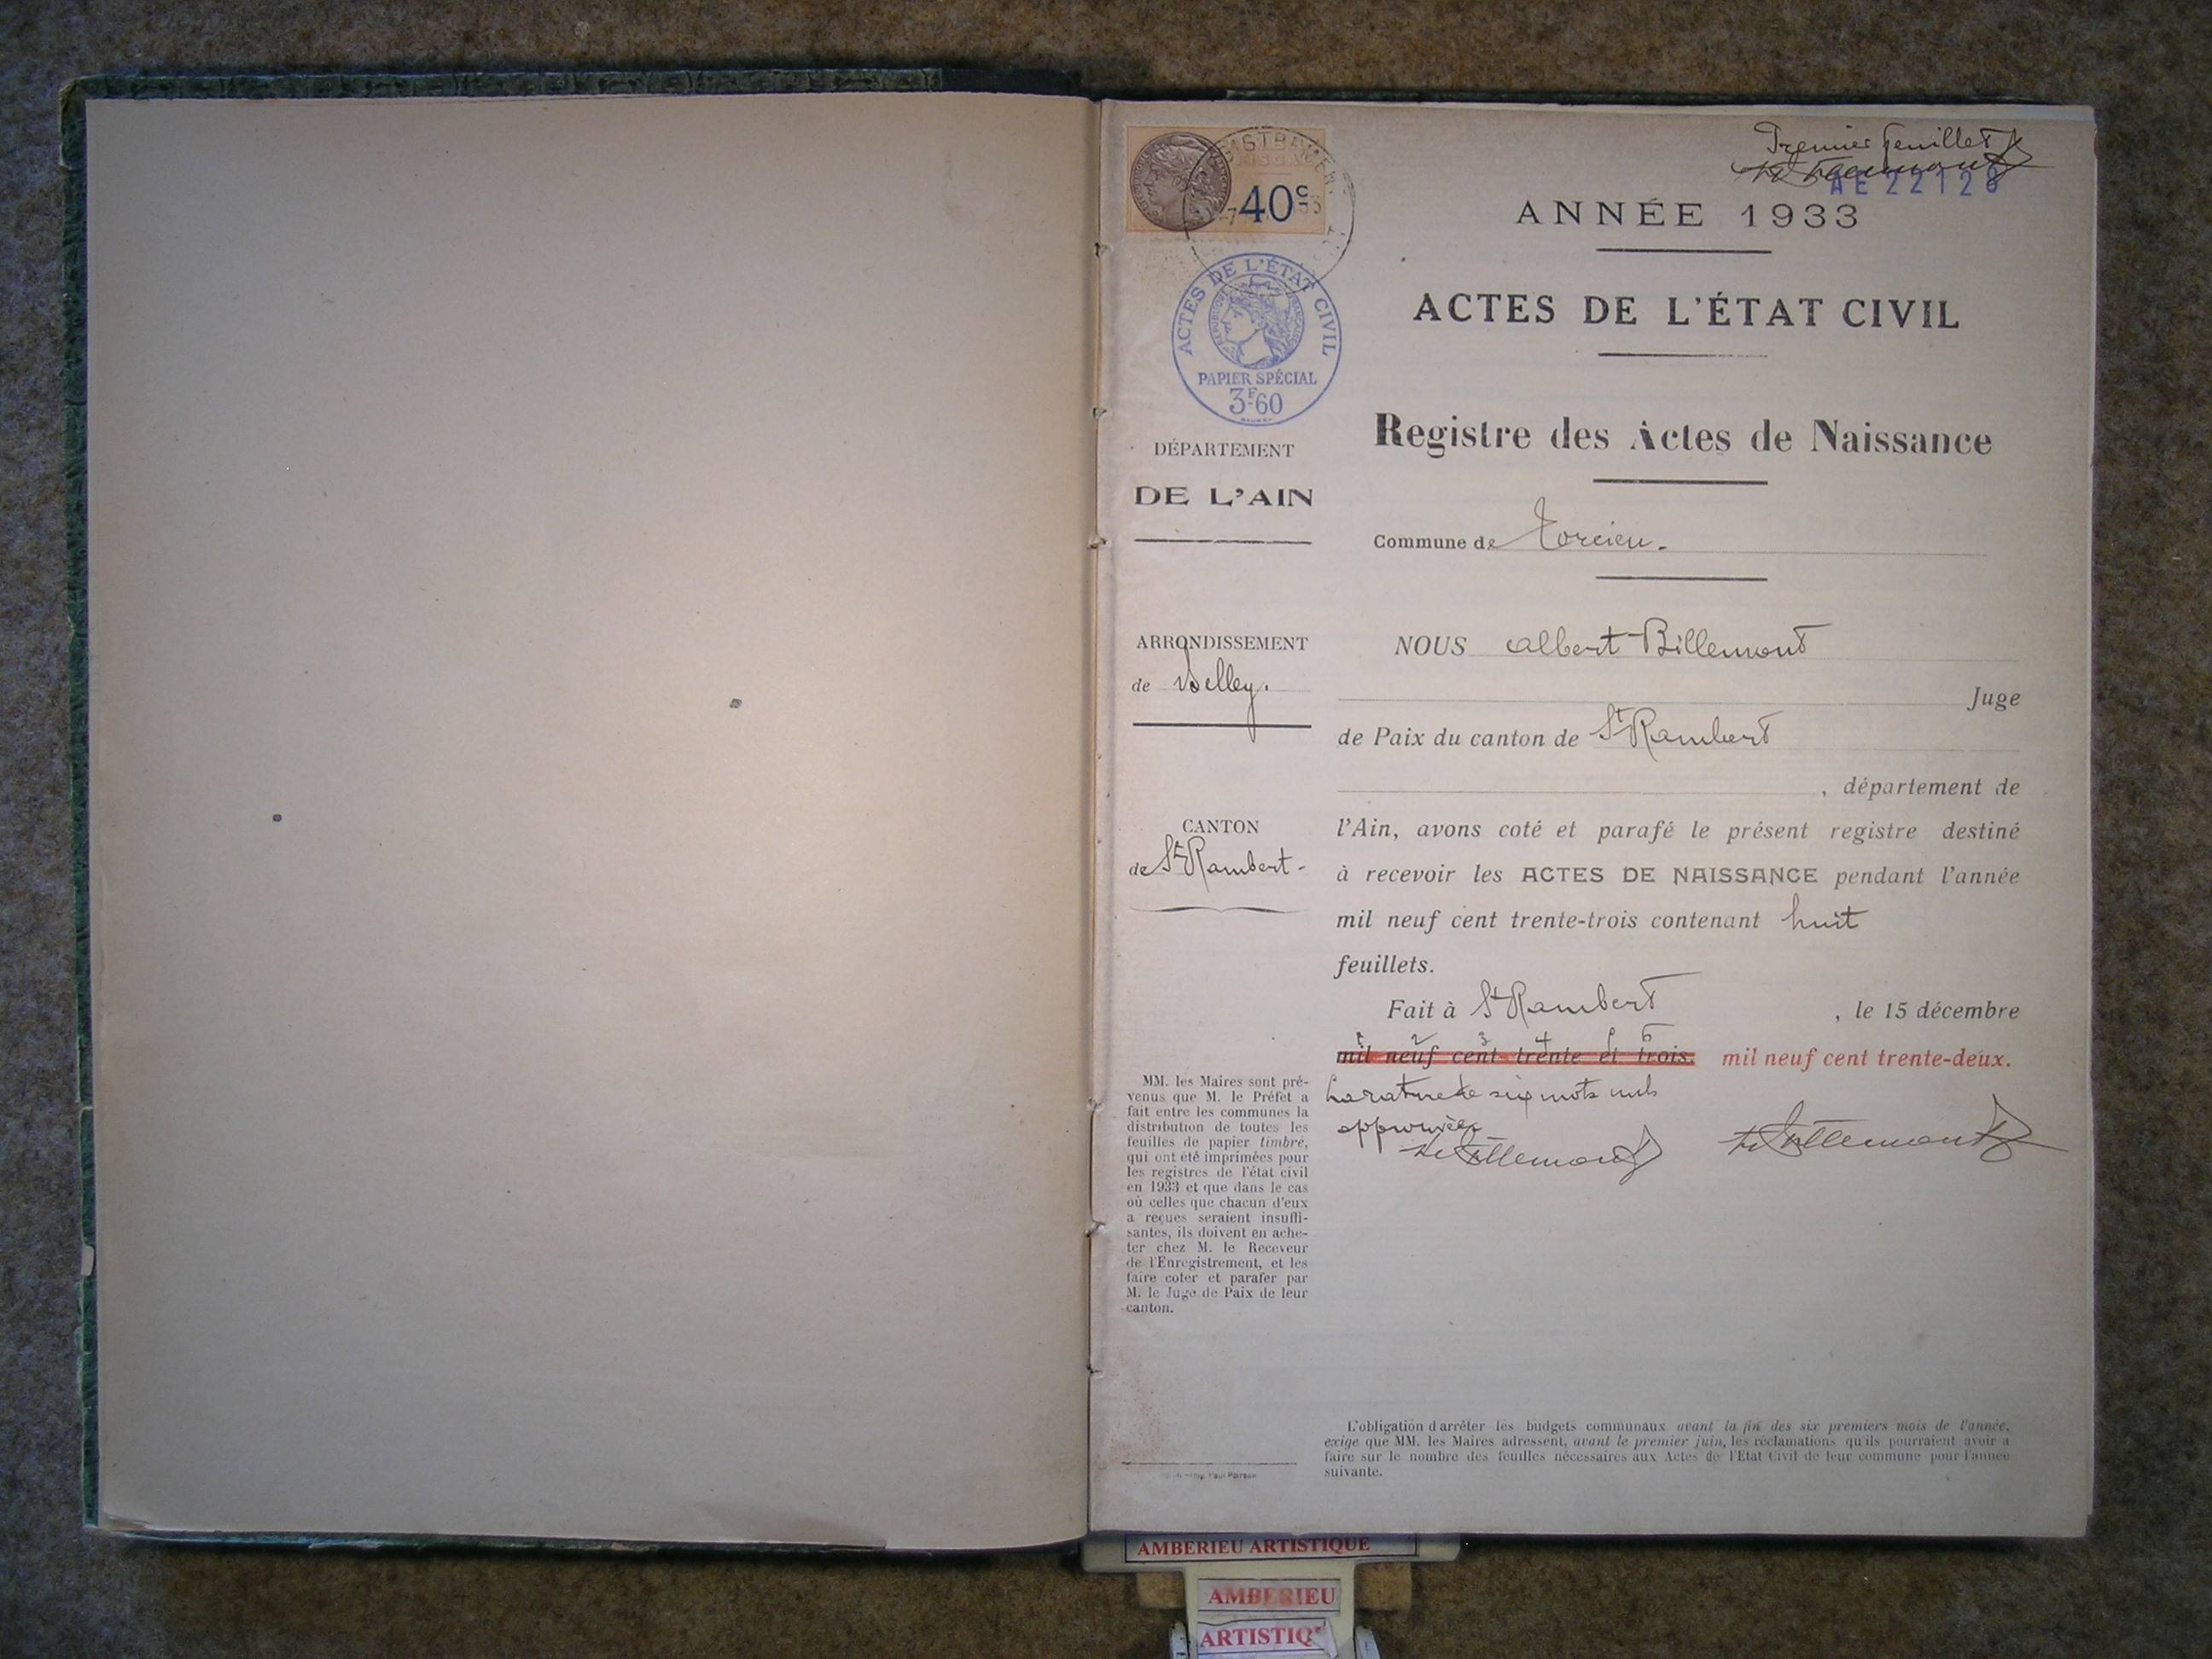 Premier feuillet
AE 22128
40c
ACTES DE L'ÉTAT CIVIL
RÉPUBLIQUE FRANÇAISE
PAPIER SPÉCIAL
3F60
ANNÉE 1933
ACTES DE L'ÉTAT CIVIL
Registre des Actes de Naissance
Commune de Torcieu.
DÉPARTEMENT
DE L'AIN
ARRONDISSEMENT
de Belley.
CANTON
de St Rambert-
MM. les Maires sont pré-
venus que M. le Préfet a
fait entre les communes la
distribution de toutes les
feuilles de papier timbré,
qui ont été imprimées pour
les registres de l'état civil
en 1933 et que dans le cas
où celles que chacun d'eux
a reçues seraient insuffi-
santes, ils doivent en ache-
ter chez M. le Receveur
de l'Enregistrement, et les
faire coter et parafer par
M. le Juge de Paix de leur
canton.
NOUS Albert Billemont
Juge
de Paix du canton de St Rambert
, département de
l'Ain, avons coté et parafé le présent registre destiné
à recevoir les ACTES DE NAISSANCE pendant l'année
mil neuf cent trente-trois contenant huit
feuillets.
Fait à St Rambert , le 15 décembre
1 2 3 4 5 6
mil neuf cent trente et trois. mil neuf cent trente-deux.
La rature de six mots nuls
approuvée
L'obligation d'arrêter les budgets communaux avant la fin des six premiers mois de l'année,
exige que MM. les Maires adressent, avant le premier juin, les réclamations qu'ils pourraient avoir à
faire sur le nombre des feuilles nécessaires aux Actes de l'Etat Civil de leur commune pour l'année
suivante.
AMBERIEU ARTISTIQUE
AMBERIEU
ARTISTIQ